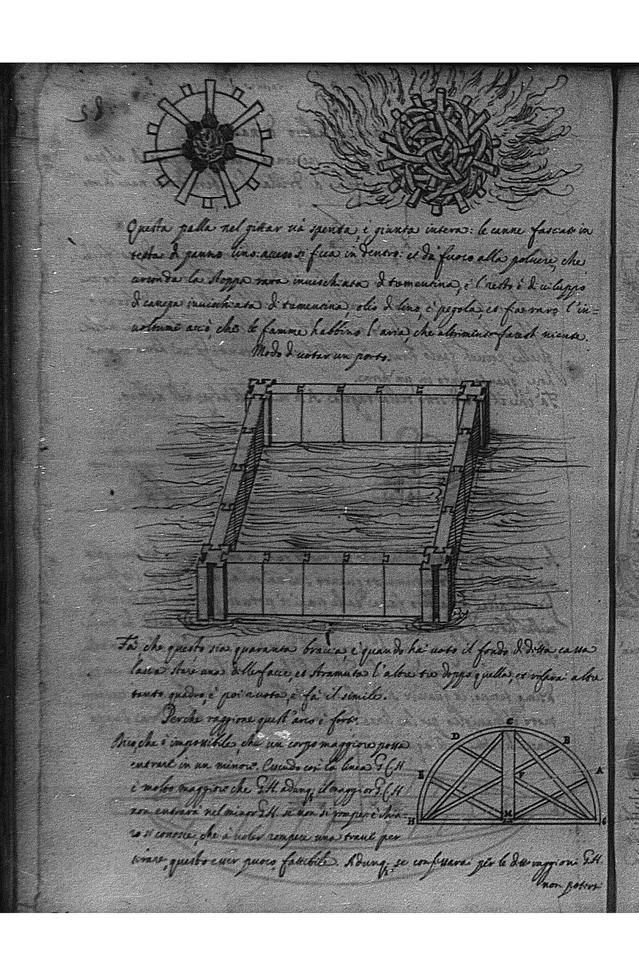 28
Questa palla nel gittar và spenta, è giunta intera: le canne fasciate in
testa di panno lino acceso si fica in dentro: et dà fuoco alla polvere, che
circonda la stoppa rara invischiata di trementina, è l'resto è di viluppo
di canepa invischiata di trementina, olio di lino, è pegola, et fia raro l'in=
volture acciò che le famme habbino l'aria, che altrimenti farest niente.
Modo di votar un porto.
Fà che questo sia quaranta braccia, è quando hai voto il fondo di ditta cassa
lascia stare una delle facce, et tramuta l'altre tre doppo quella, et rifarai altre
tanto quadro, è poi ruota, è fà il simile.
Perche raggione quest'arco è forte.
Dico, che è impossibile che un corpo maggiore possa
entrare in un minore. Essendo così la linea G C H
è molto maggiore che G H. adunq; il maggior G C H
non entrarà nel minor G H. se non si rompe: è chia=
ro si conosce, che à voler rompere una trave per
tirare, questo esser puoco fattibile. Adunq; se confessarai per le dette raggioni G H.
non poter
C
D
B
E
A
F
H
M
G